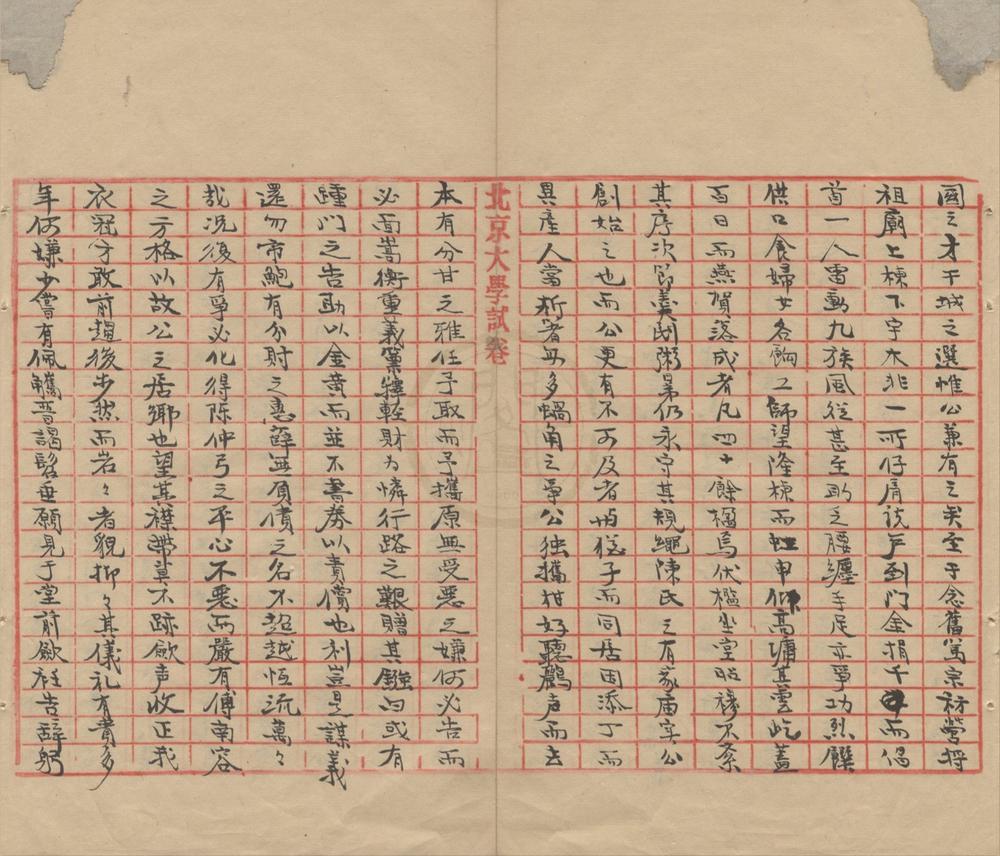 國之才干城之選惟公兼有之矣至于念舊篤宗祊營將
祖廟上棟下宇木非一所仔肩說戶到門金捐千而倡
首一人雷動九族風從甚至助乏腰纏手足亦爭功烈饌
供口食婦女各餉工師望隆棟而申仰高墉其雲屹蓋
百日而燕賀落成者凡四十餘楹烏伏檻坐堂昭穆不紊
其序次節義閎粥弟仍永守其規繩陳氏之有家廟实公
創始之也而公更有不可及者猶子而同居因添丁而
異產人當析者每多蝸角之爭公独攜柑好聽鸝声而去
北京大學試卷
本有分甘之雅任予取而予攜原無受惡之嫌何必告而
必面嵩衡重義黨釋輕財为憐行路之艱贈其鏹向或有
踵門之告助以金黄而並不書券以責償也利豈是謀義
還勿市鮑有分財之惠薛無負債之名不超越恆流萬々
哉况後有爭必化得陈仲弓之平心不惡而嚴有傅南容
之方格以故公之居鄉也望其襟帶莫不跡歛声收正我
衣冠才敢前趨後步然而岩々者貌抑々其儀礼有貴多
年何嫌少嘗有佩觿晋謁髫垂願見于堂前歛衽告辞躬